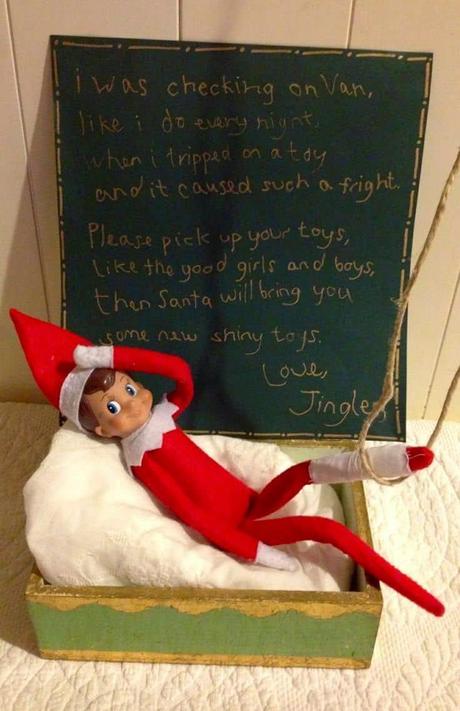 i was checking on Van,
like i do every night,
when i tripped on a toy
and it caused such a fright.
Please pick up your toys,
like the good girls and boys,
then Santa will bring you
some new shiny toys.
Love,
Jingles